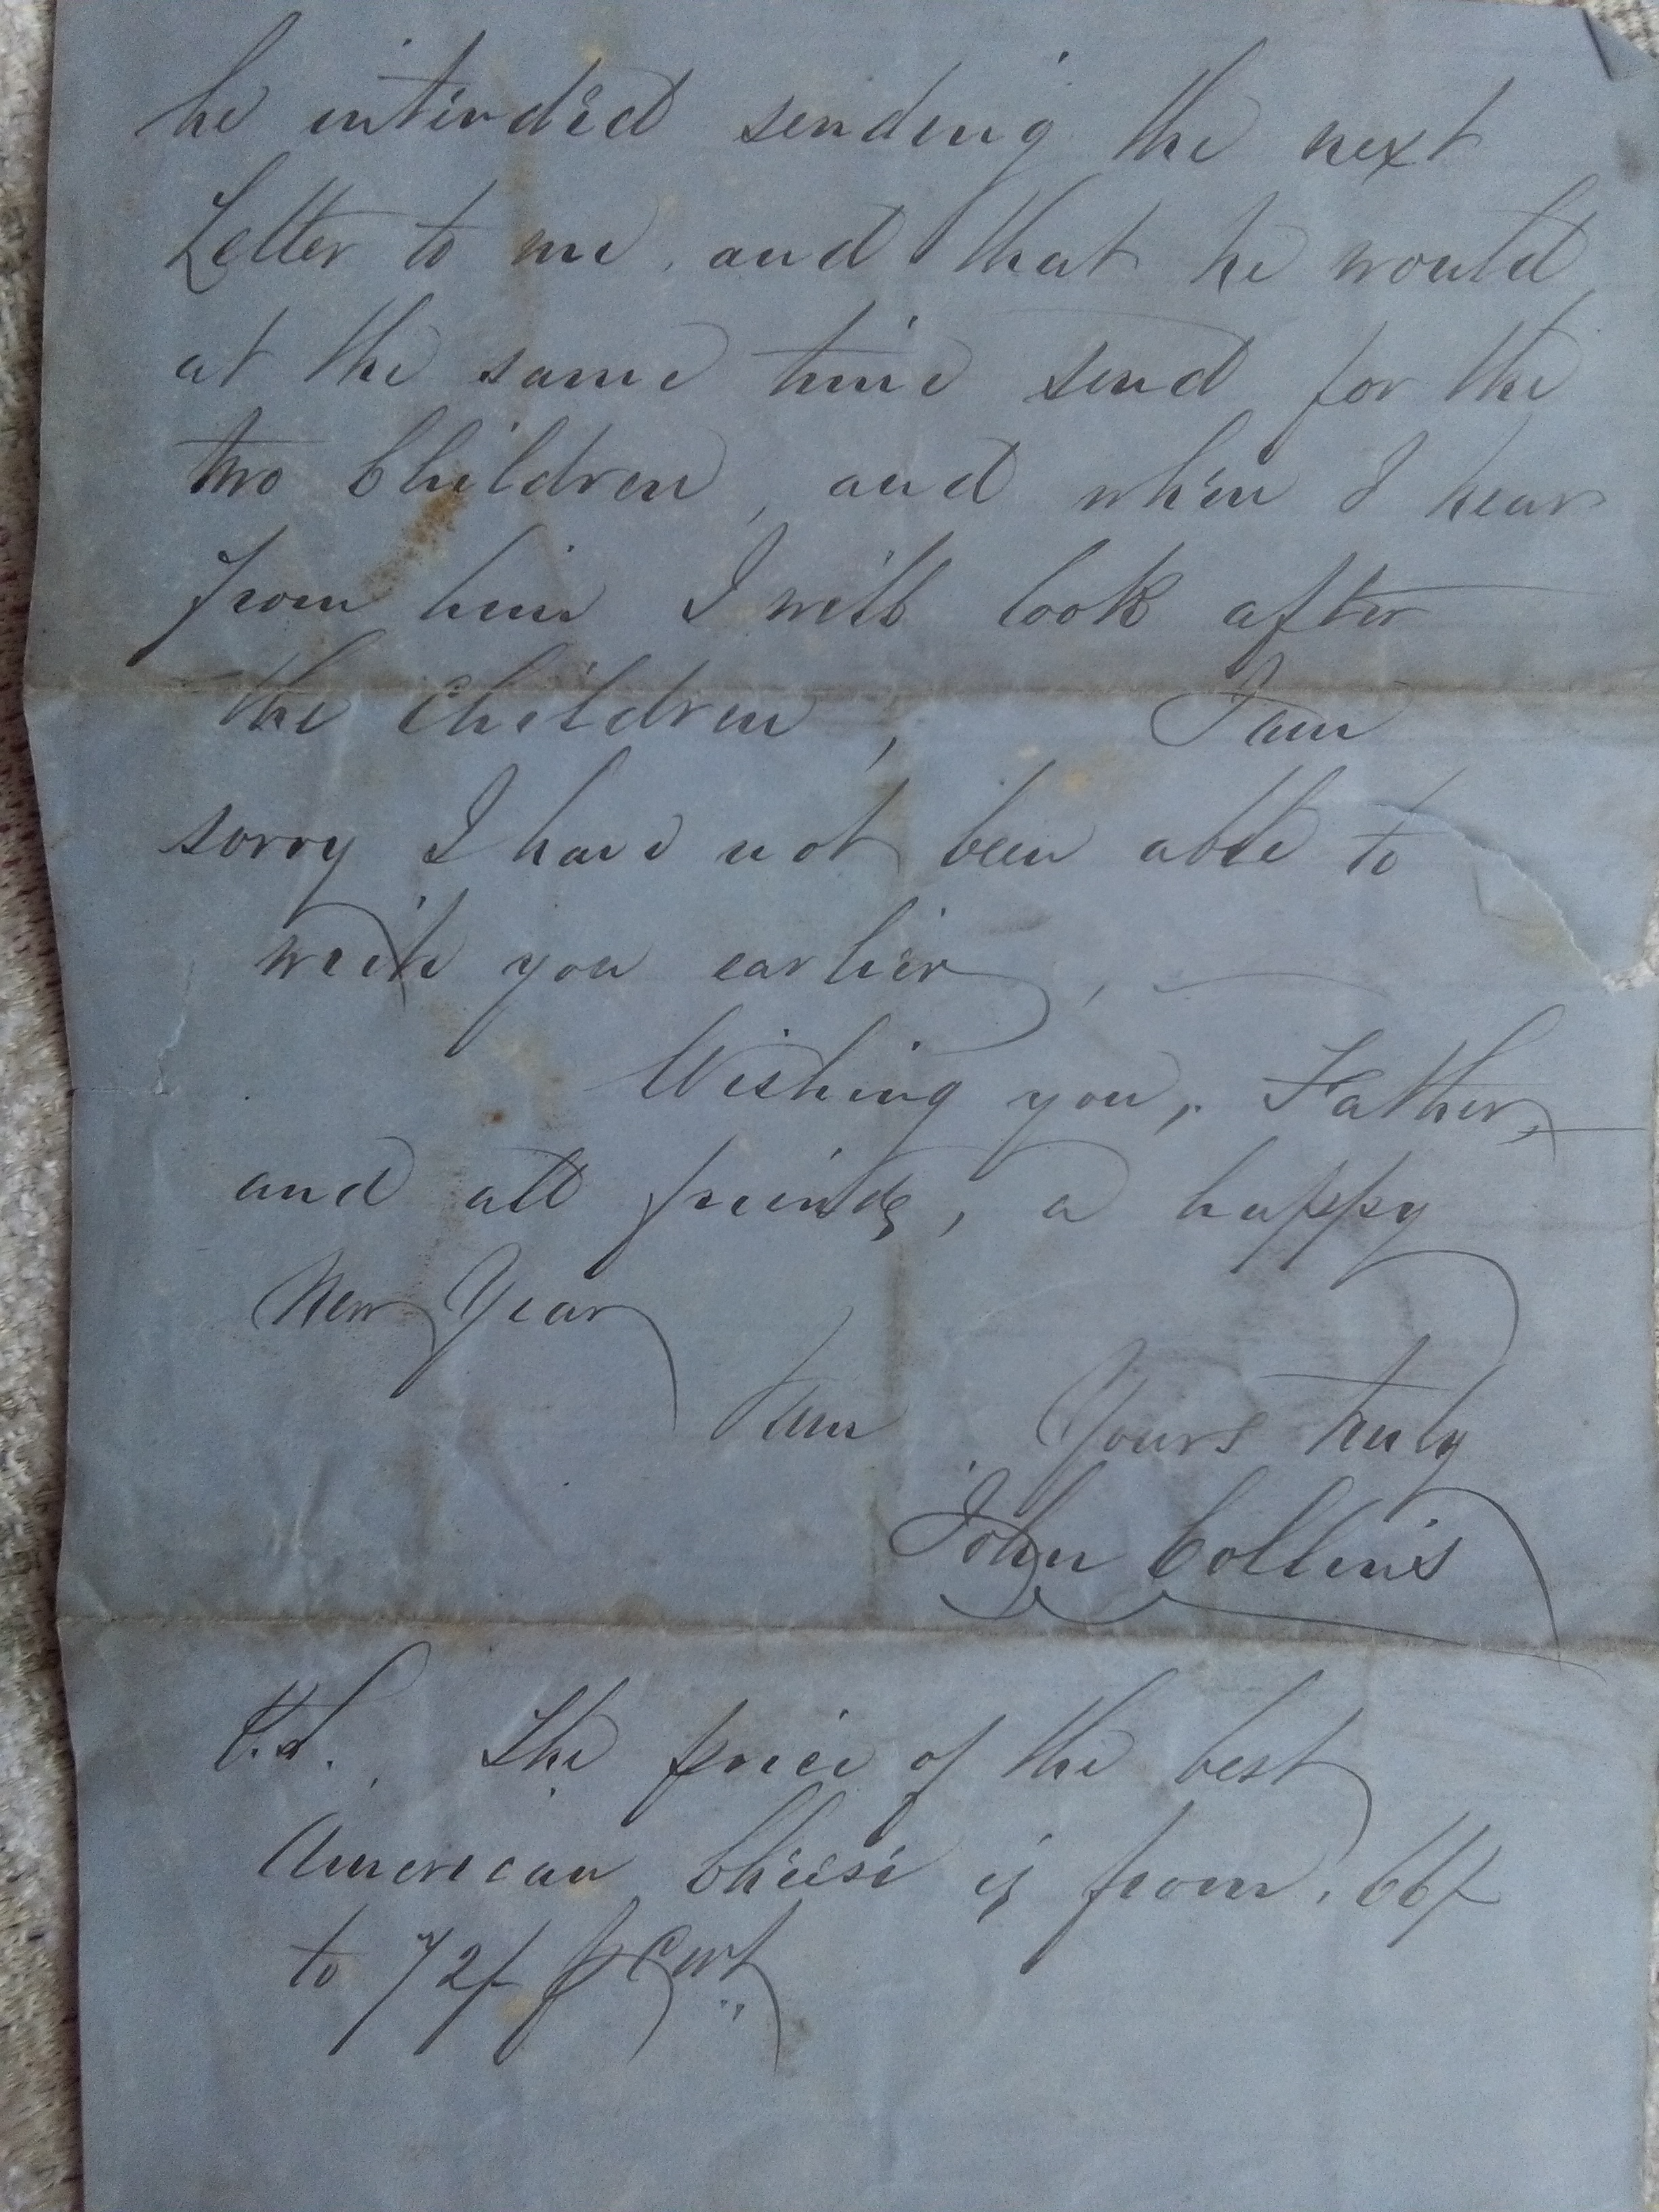 he intended sending the next
Letter to me, and that he would
at the same time send for the
two Children, and when I hear
from him I will look after
the Children, I am
sorry I have not been able to
write you earlier,
Wishing you, Father,
and all friends, a happy
New Year
I am Yours truly
John Collins
P.S. The price of the best
American Cheese is from 66/-
to 72/- p Cwt